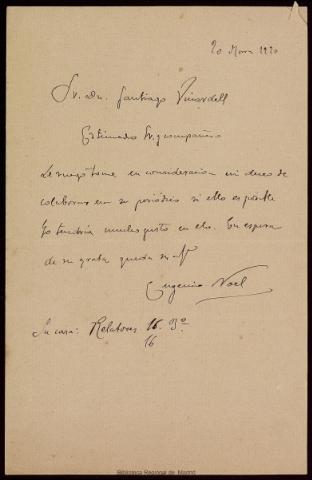 20 Marzo 1920
Sr. Dn. Santiago Vinardell
Estimado Sr. y compañero
Le ruego tome en consideración mi deseo de
colaborar en su periódico si ello es posible
Yo tendría mucho gusto en ello. En espera
de su grata queda su afº
Eugenio Noel
Su casa: Relatores 16. 3º
16
Biblioteca Regional de Madrid